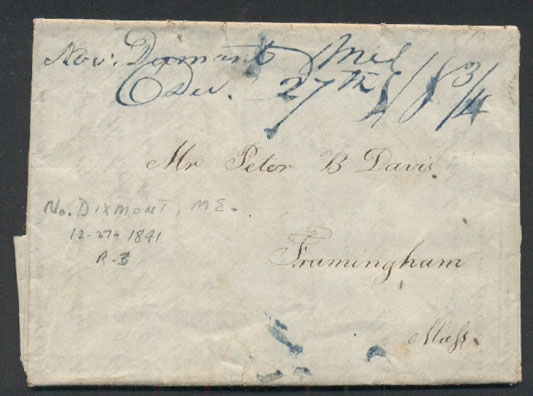 Nov. Dixmont Me
Dec. 27th 18 3/4
Mr Peter B Davis
No. DIXMONT, ME.
12-27-1841
R-3
Framingham
Mass.